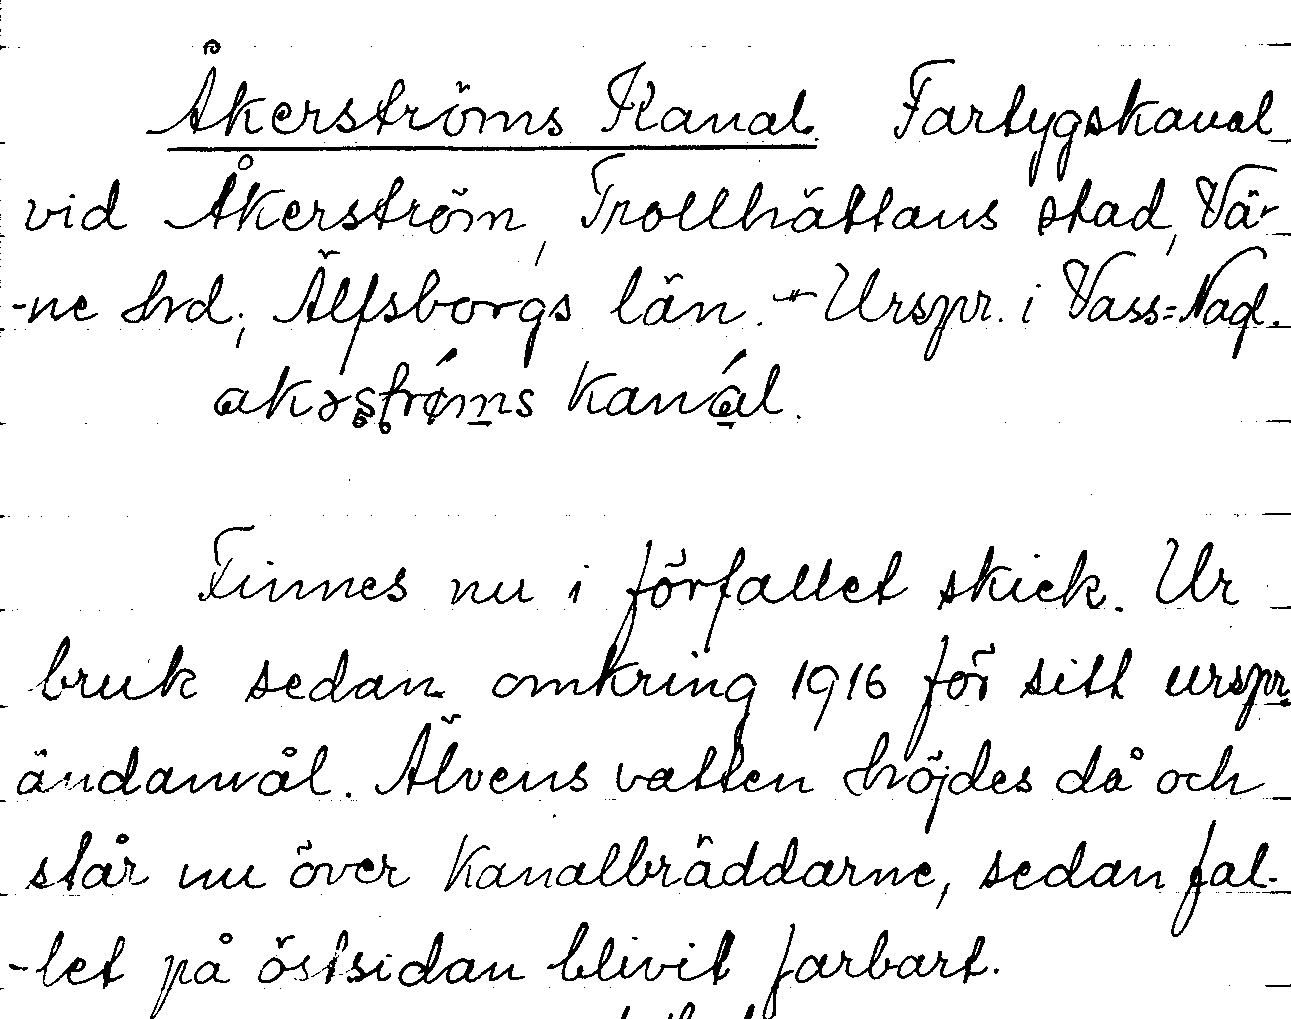 Åkerströms Kanal. Fartygskanal
vid Åkerström, Trollhättans stad, Vä-
-ne hrd, Älfsborgs län. - Urspr. i Vass-Nag.
akərströms kanál.
Finnes nu i förfallet skick. Ur
bruk sedan omkring 1916 för sitt urspr.
ändamål. Älvens vatten höjdes då och
står nu över Kanalbräddarne, sedan fal-
-let på östsidan blivit farbart.